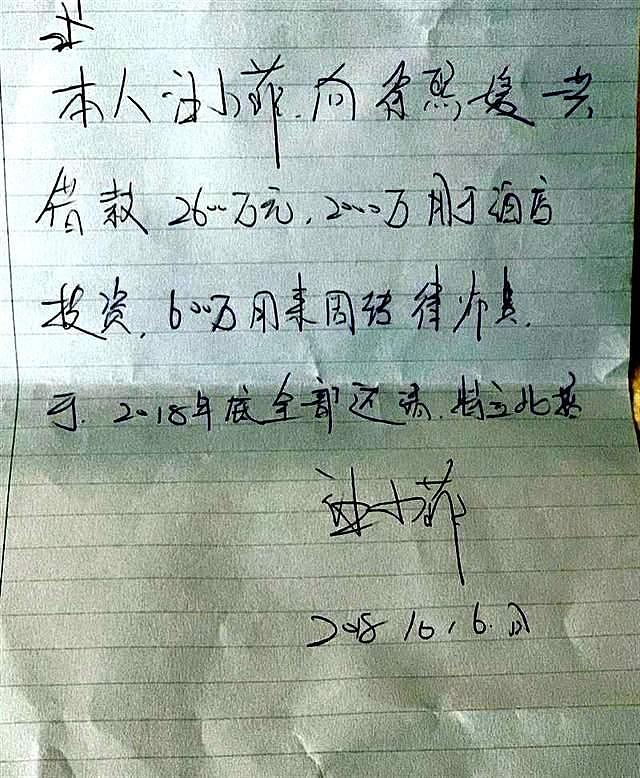 本人汪小菲,向徐熙媛共
借款 2600万元,2000万用于酒店
投资,600万用来周转律师费,
于2018年底全部还清.特立此据
汪小菲
2018 10,6.日